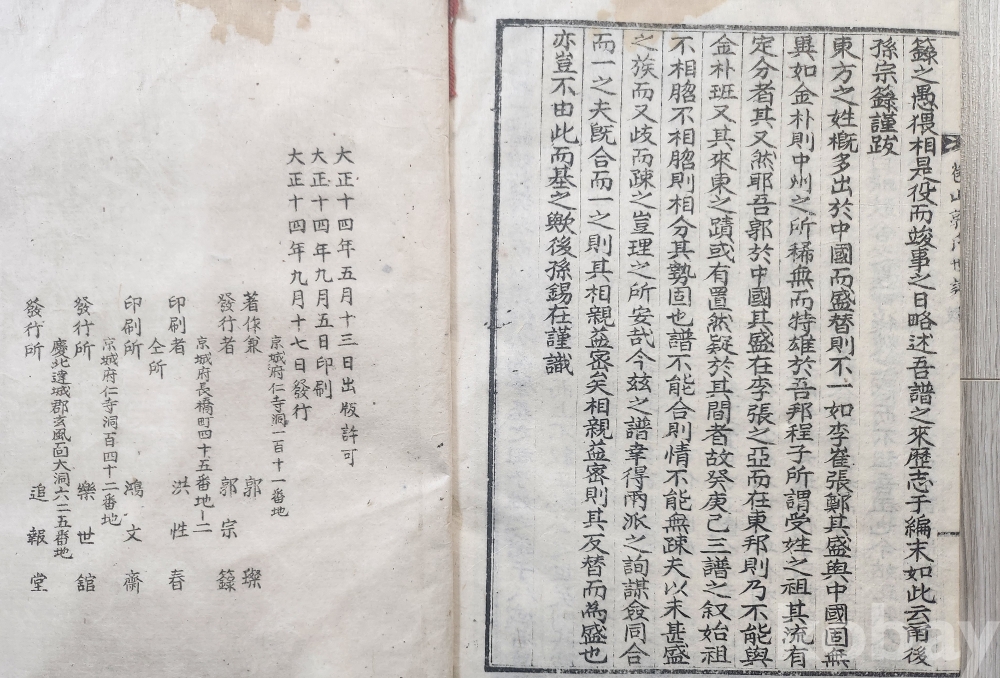 錄之愚猥相是役而竣事之日略述吾譜之來歷志于編末如此云甭後
孫宗錄謹跋
東方之姓槪多出於中國而盛替則不一如李崔張鄭其盛與中國固無
異如金朴則中州之所稀無而特雄於吾邦程子所謂受姓之祖其流有
定分者其又然耶吾郭於中國其盛在李張之亞而在東邦則乃不能與
金朴班又其來東之蹟或有置然疑於其間者故癸庚己三譜之叙始祖
不相䏰不相䏰則相分其勢固也譜不能合則情不能無疎夫以未甚盛
之族而又歧而疎之豈理之所安哉今玆之譜幸得兩派之詢謀僉同合
而一之夫旣合而一之則其相親益密矣相親益密則其反替而為盛也
亦豈不由此而基之歟後孫錫在謹識
大正十四年五月十三日出版許可
大正十四年九月五日印刷
大正十四年九月十七日發行
京城府仁寺洞一百十一番地
著作兼 郭 璨
發行者 郭宗錄
京城府長橋町四十五番地ノ二
印刷者 洪性春
仝所
印刷所 鴻文齋
京城府仁寺洞百四十二番地
發行所 樂世舘
慶北達城郡玄風面大洞六二五番地
發行所 追報堂
kobay